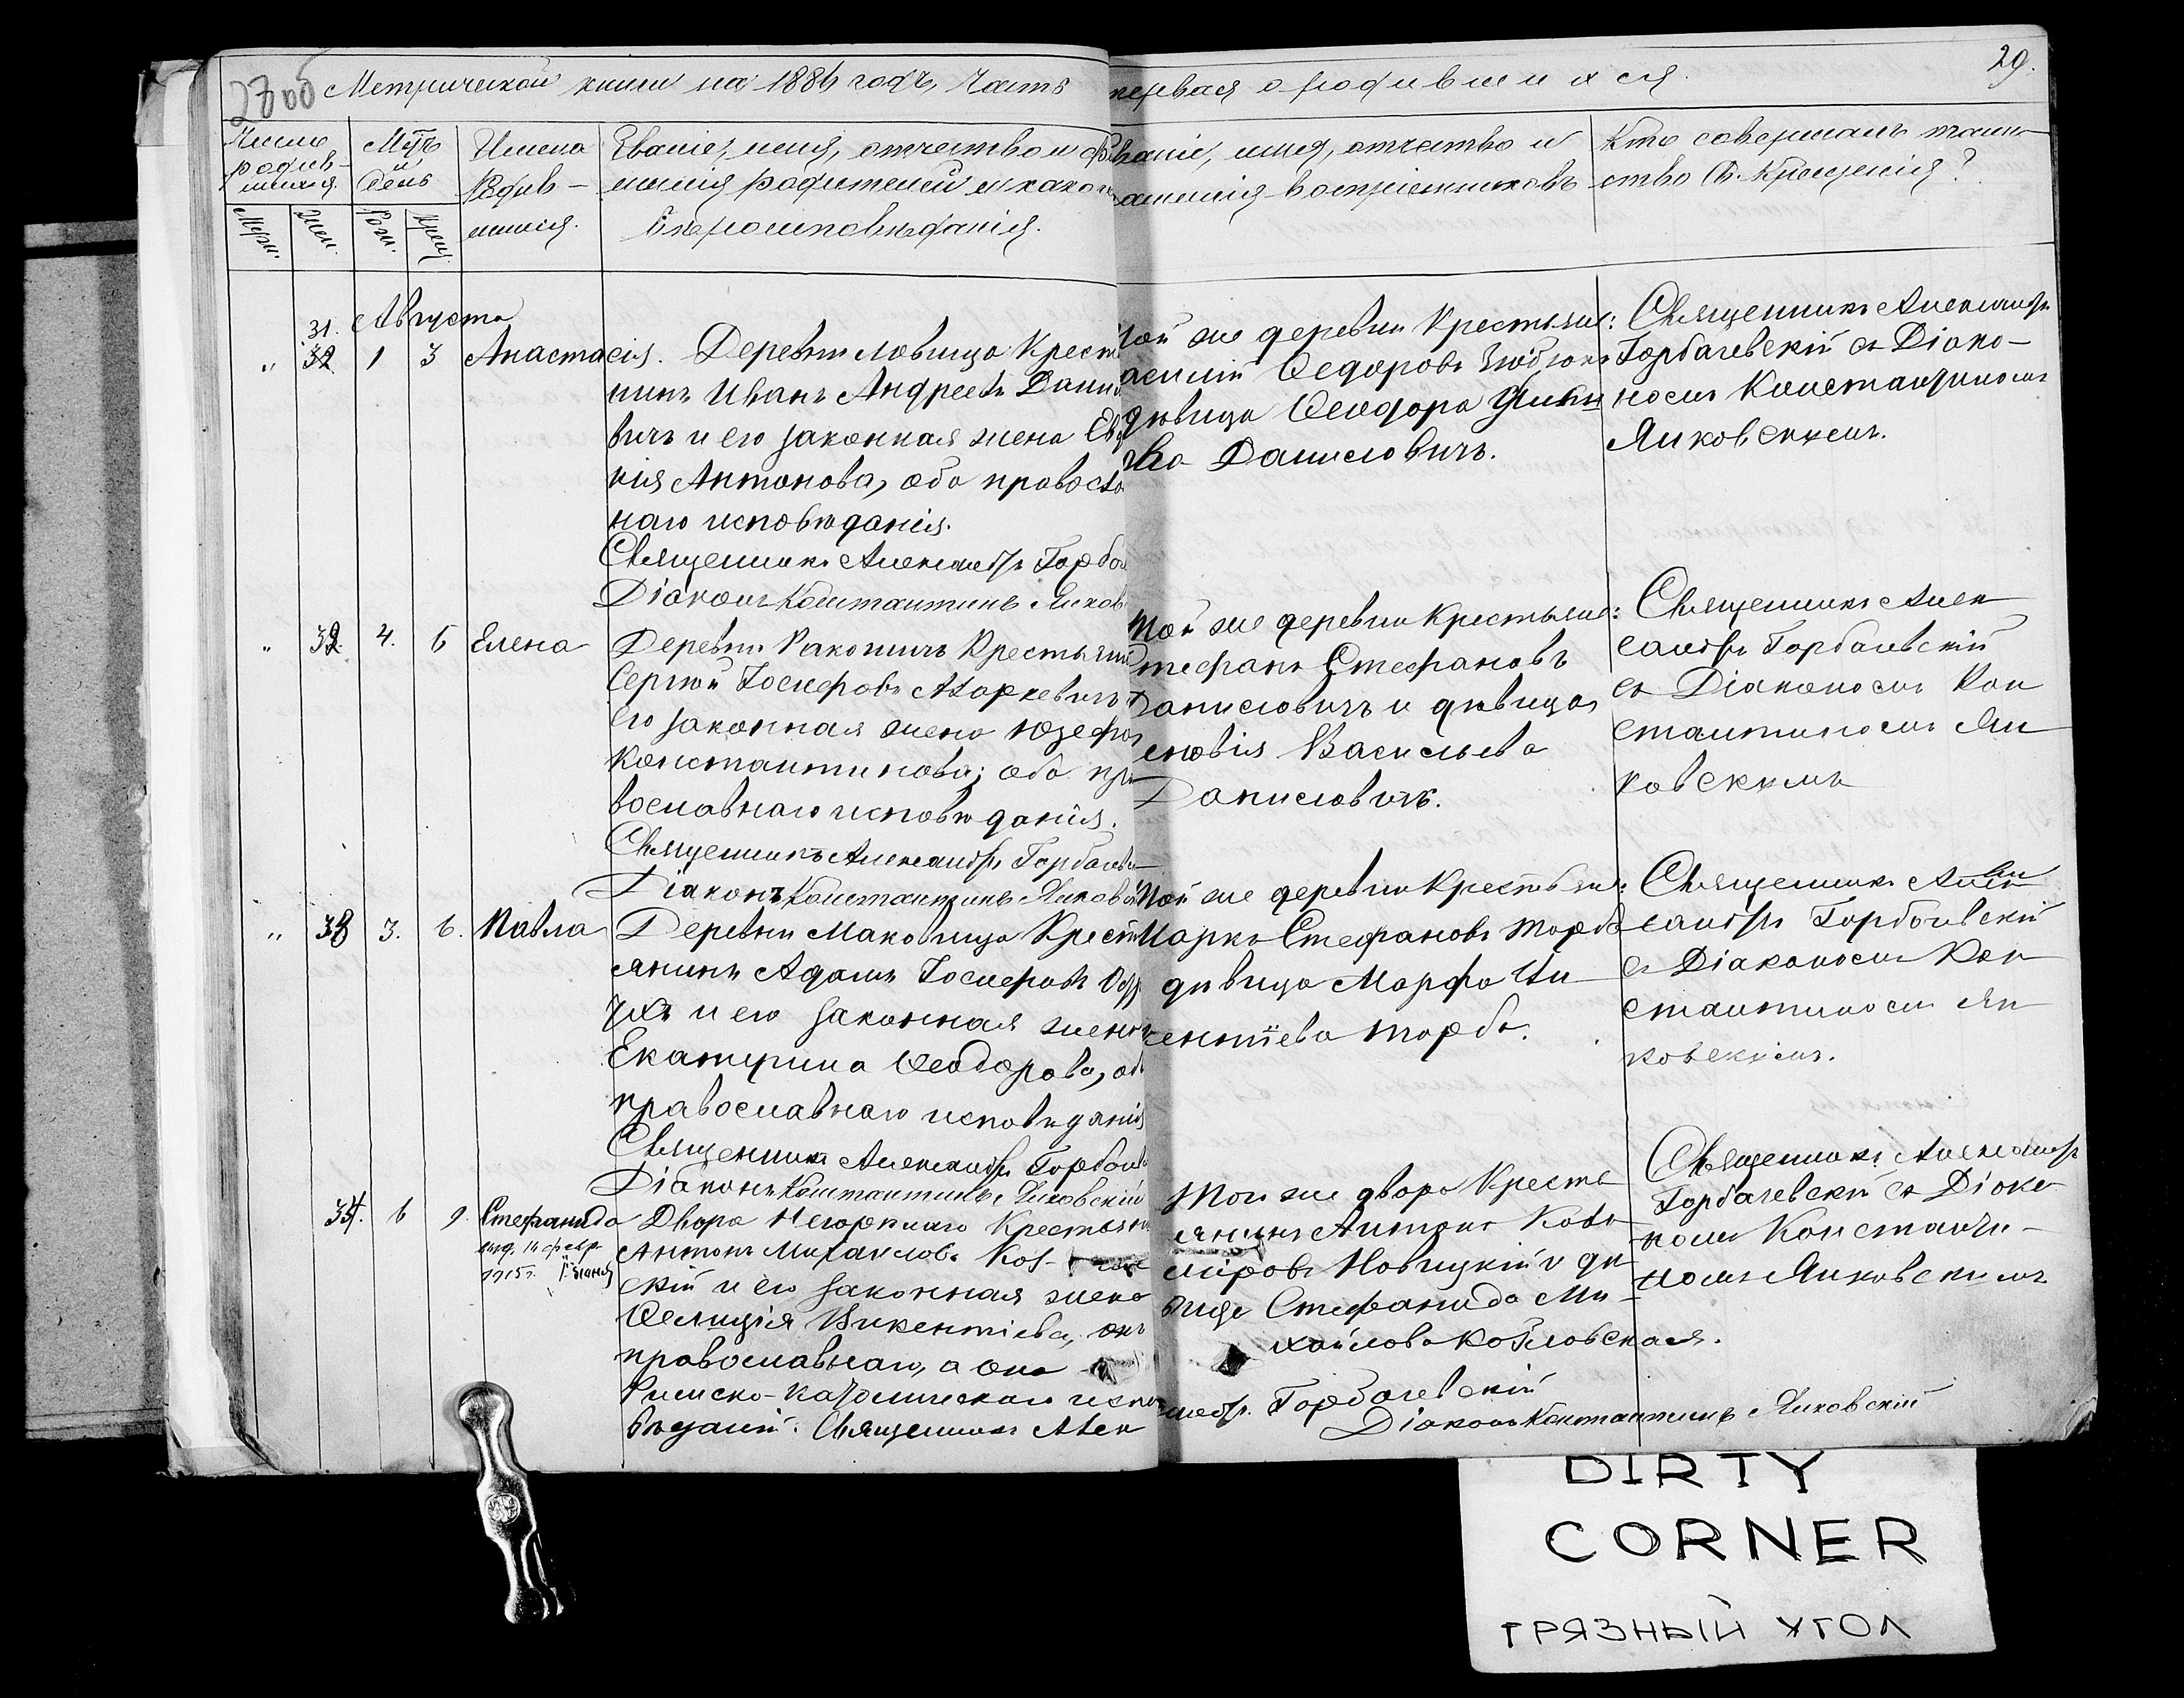 28 об Метрической книги на 1886 годъ, Часть первая о родившихся.
29.
Число родив-шихся.
Муж.
Жен.
Мѣсяцъ и день
Рож.
Крещ.
Имена Родив-шихся.
Званіе, имя, отчество и фамилія родителей и какого
Вѣроисповѣданія.
Званіе, имя, отчество и
фамилія воспріемниковъ
Кто совершалъ таин-
ство Св. Крещенія?
Августа
31.
" 32 1 3 Анастасія. Деревни Ловища Крест
нинъ Иванъ Андреевъ Данил
вичъ и его законная жена Ев
кія Антонова, оба правосла
наго исповѣданія.
Священникъ Александръ Горбач
Діаконъ Константинъ Янков
Той же деревни Крестьян:
Ѳедоровъ
дѣвица Ѳеодора
Даниловичъ.
Священникъ Александръ
Горбачевскій съ Діако-
номъ Константиномъ
Янковскимъ.
" 32. 4. 6 Елена Деревни Крестьянин
Сергѣй Іосифовъ Маркевичъ и
его законная жена Юзефа
Константинова; оба пра
вославнаго исповѣданія.
Священникъ Александръ Горбачев
Діаконъ Константинъ Янковскій
Той же деревни Крестьян:
Стефанъ Стефановъ
Даниловичъ и дѣвица
Васильева
Даниловичъ.
Священникъ Алек
сандръ Горбачевскій
съ Діакономъ Кон
стантиномъ Ян
ковскимъ
" 33 3. 6. Павла Деревни Маковища Крест
янинъ Адамъ Іосифовъ
и его законная жена
Екатерина Ѳеодорова, об
православнаго исповѣданія
Священникъ Александръ Горбачев
Діаконъ Константинъ Янковскій
Той же деревни Крестьян:
Марко Стефановъ Торба
дѣвица Марфа Ви
кентіева Торба.
Священникъ Алек
сандръ Горбачевскій
съ Діакономъ Кон
стантиномъ Ян
ковскимъ.
34. 6 9. Стефанида Двора Негорѣлаго Крестьянин
выд. 14 февр.
1915 г.
Антонъ Михаиловъ Коз
скій и его законная жена
Фелиція Викентіева, онъ
православнаго, а она
Римско-Католическаго испо
вѣданій. Священникъ Алек
сандръ Горбачевскій
Діаконъ Константинъ Янковскій
Того же двора Кресть
янинъ Антонъ
Новицкій и дѣ
вица Стефанида Ми
хайлова Козловская.
Священникъ Александръ
Горбачевскій съ Діако
номъ Константи-
номъ Янковскимъ
DIRTY
CORNER
ГРЯЗНЫЙ УГОЛ